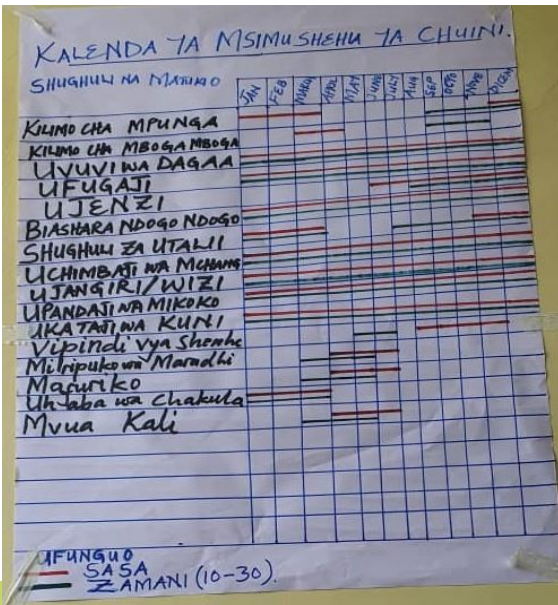 KALENDA YA MSIMU SHEHIA YA CHUINI.
SHUGHULI NA MATUKIO
JAN FEB MARCH APRL MAY JUNE JULY AUG SEP OCTO NOVE DICEM
KILIMO CHA MPUNGA
KILIMO CHA MBOGA MBOGA
UVUVI WA DAGAA
UFUGAJI
UJENZI
BIASHARA NDOGO NDOGO
SHUGHULI ZA UTALII
UCHIMBAJI WA MCHANGA
UJANGIRI/WIZI
UPANDAJI WA MIKOKO
UKATAJI WA KUNI
Vipindi vya Sherehe
Miripuko wa Maradhi
Mafuriko
Uhaba wa Chakula
Mvua Kali
UFUNGUO
SASA
ZAMANI (10-30).